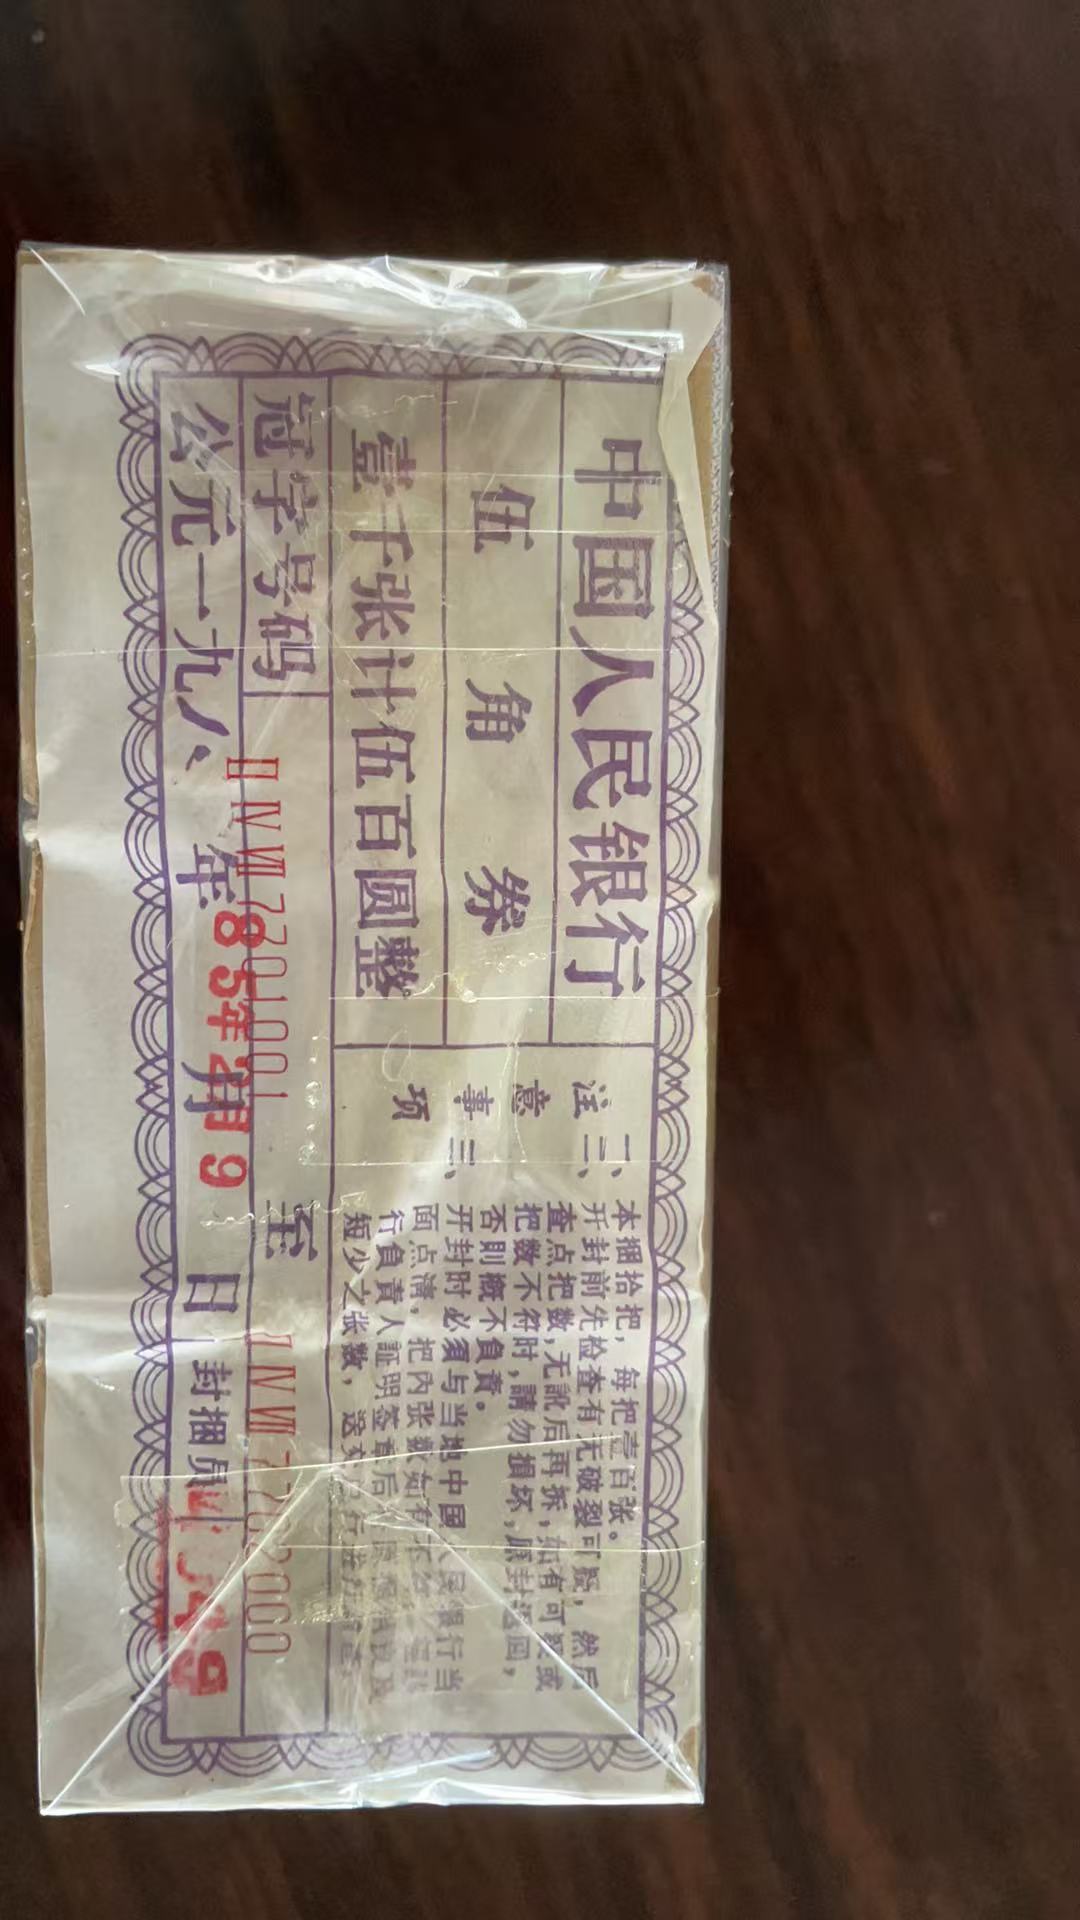 中国人民银行
伍角券
壹千张计伍百圆整
注意事项
一、本捆拾把，每把壹百张。
开封前先检查有无破裂可疑，然后
查点把数，无訛后再拆，如有可疑或
把数不符时，請勿損坏，原封退回，
否則概不負責。
二、开封时必须与当地中国人民银行当
面点清，把內张数如有
行負責人証明签章后
短少之张数，送交
冠字号码 ⅡⅣⅦ7701001 至 ⅡⅣⅦ7702000
公元一九八 年 月 日 封捆員
85年2月9